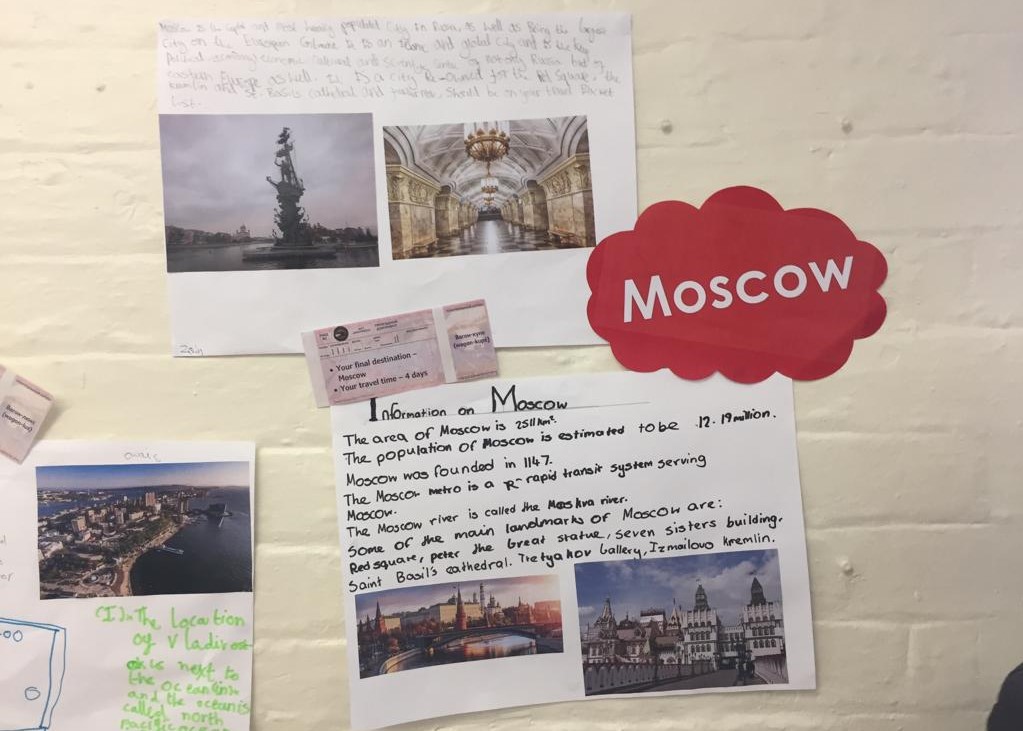 Moscow is the capital and most heavily populated City in Russia, as well as being the largest
City on the European and global City and is the key
political economic and scientific of not only Russia but of
eastern Europe as well. It is a city Re-owned for the Red Square, the
Kremlin and St. Basils cathedral and should be on your travel Bucket
List.
Zain
Moscow
• Your final destination –
Moscow
• Your travel time – 4 days
Вагон-купе
(wagon-kupé)
Information on Moscow
The area of Moscow is 2511km².
The population of Moscow is estimated to be 12.19 million.
Moscow was founded in 1147.
The Moscow metro is a R- rapid transit system serving
Moscow.
The Moscow river is called the Moskva river.
Some of the main landmarks of Moscow are:
Red square, peter the Great statue, seven sisters building,
Saint Basil's cathedral, Tretyakov Gallery, Izmailovo kremlin.
(I)- The Location
of Vladivost
ok is next to
the ocean
and the ocean is
called north
pacific ocean